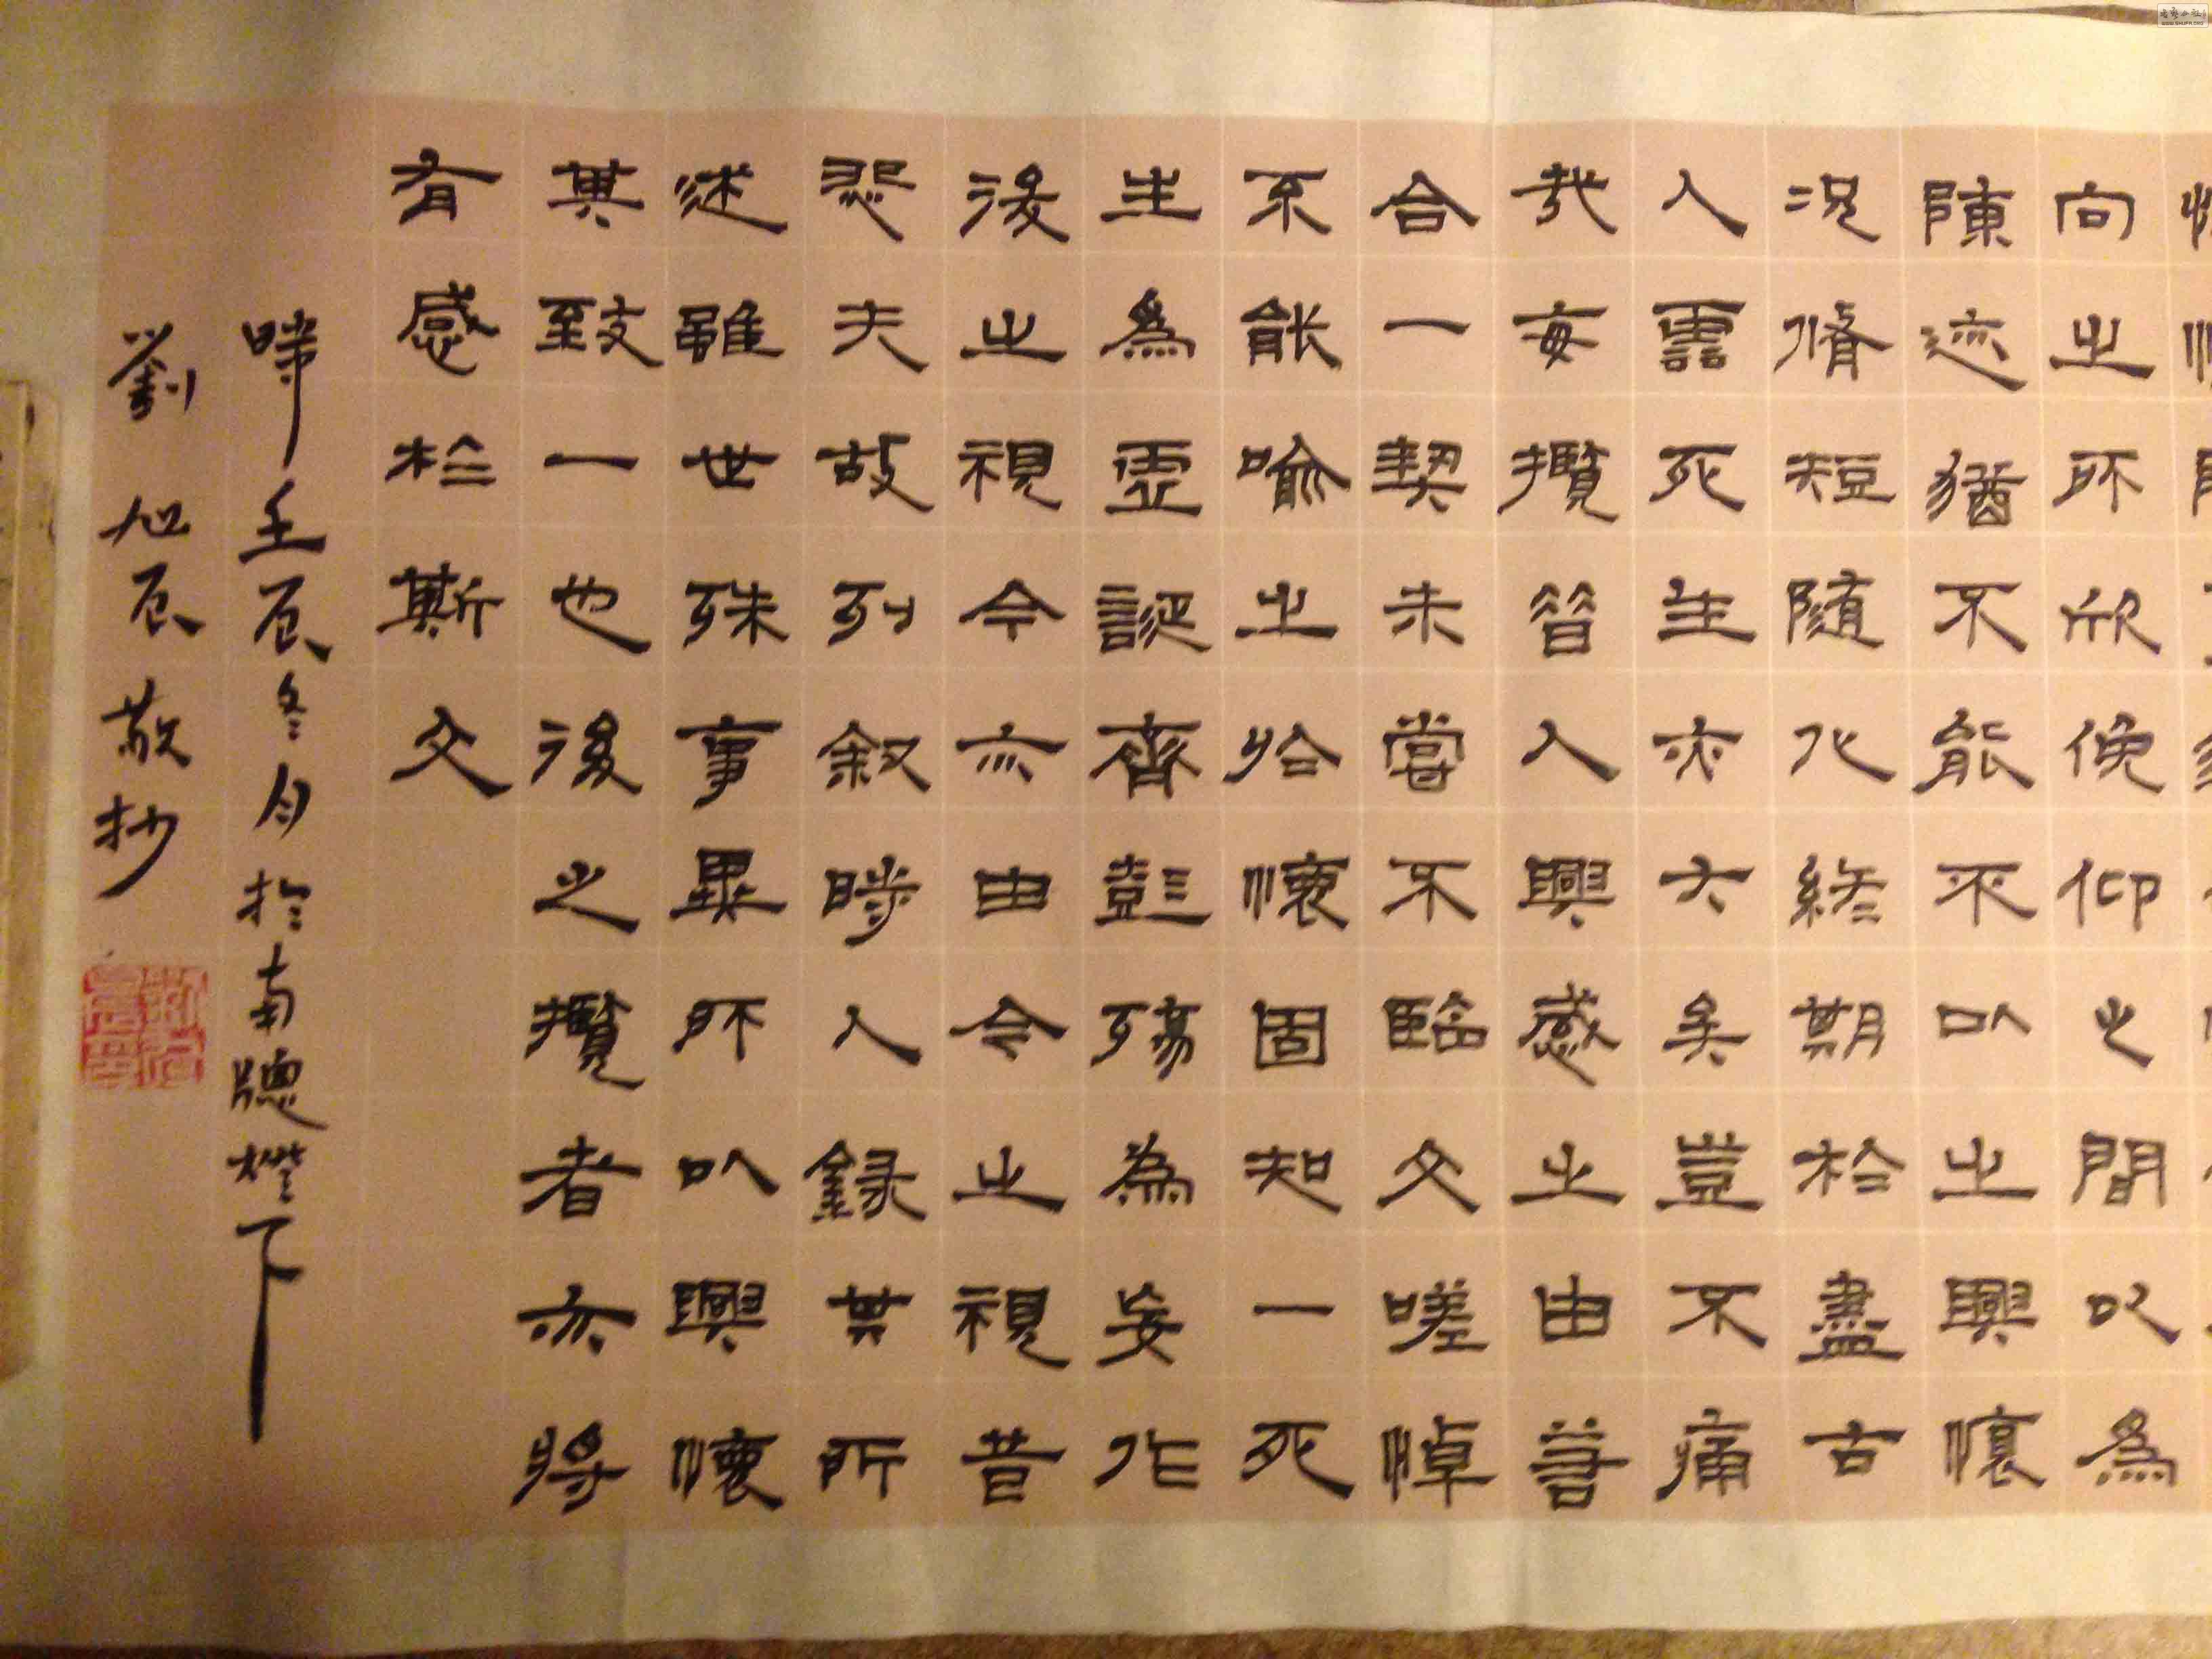 向之所欣俛仰之間以為
陳迹猶不能不以之興懷
況脩短隨化終期於盡古
人雲死生亦大矣豈不痛
哉每攬昔人興感之由若
合一契未嘗不臨文嗟悼
不能喻之於懷固知一死
生為虛誕齊彭殤為妄作
後之視今亦由今之視昔
悲夫故列叙時人錄其所
述雖世殊事異所以興懷
其致一也後之攬者亦將
有感於斯文
時壬辰冬月於南牕燈下
劉旭辰敬抄